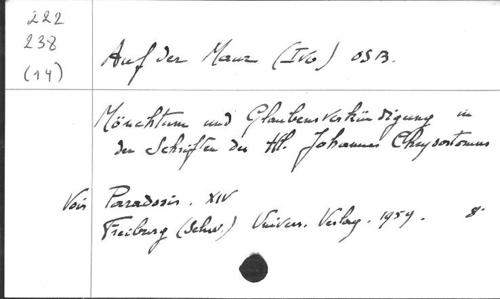 222
238
(14)
Auf der Maur (Ivo) OSB.
Mönchtum und Glaubensverkündigung in
den Schriften des Hl. Johannes Chrysostomus
Voir Paradosis. XIV
Freiburg (Schw.) Univers. Verlag. 1959. 8°